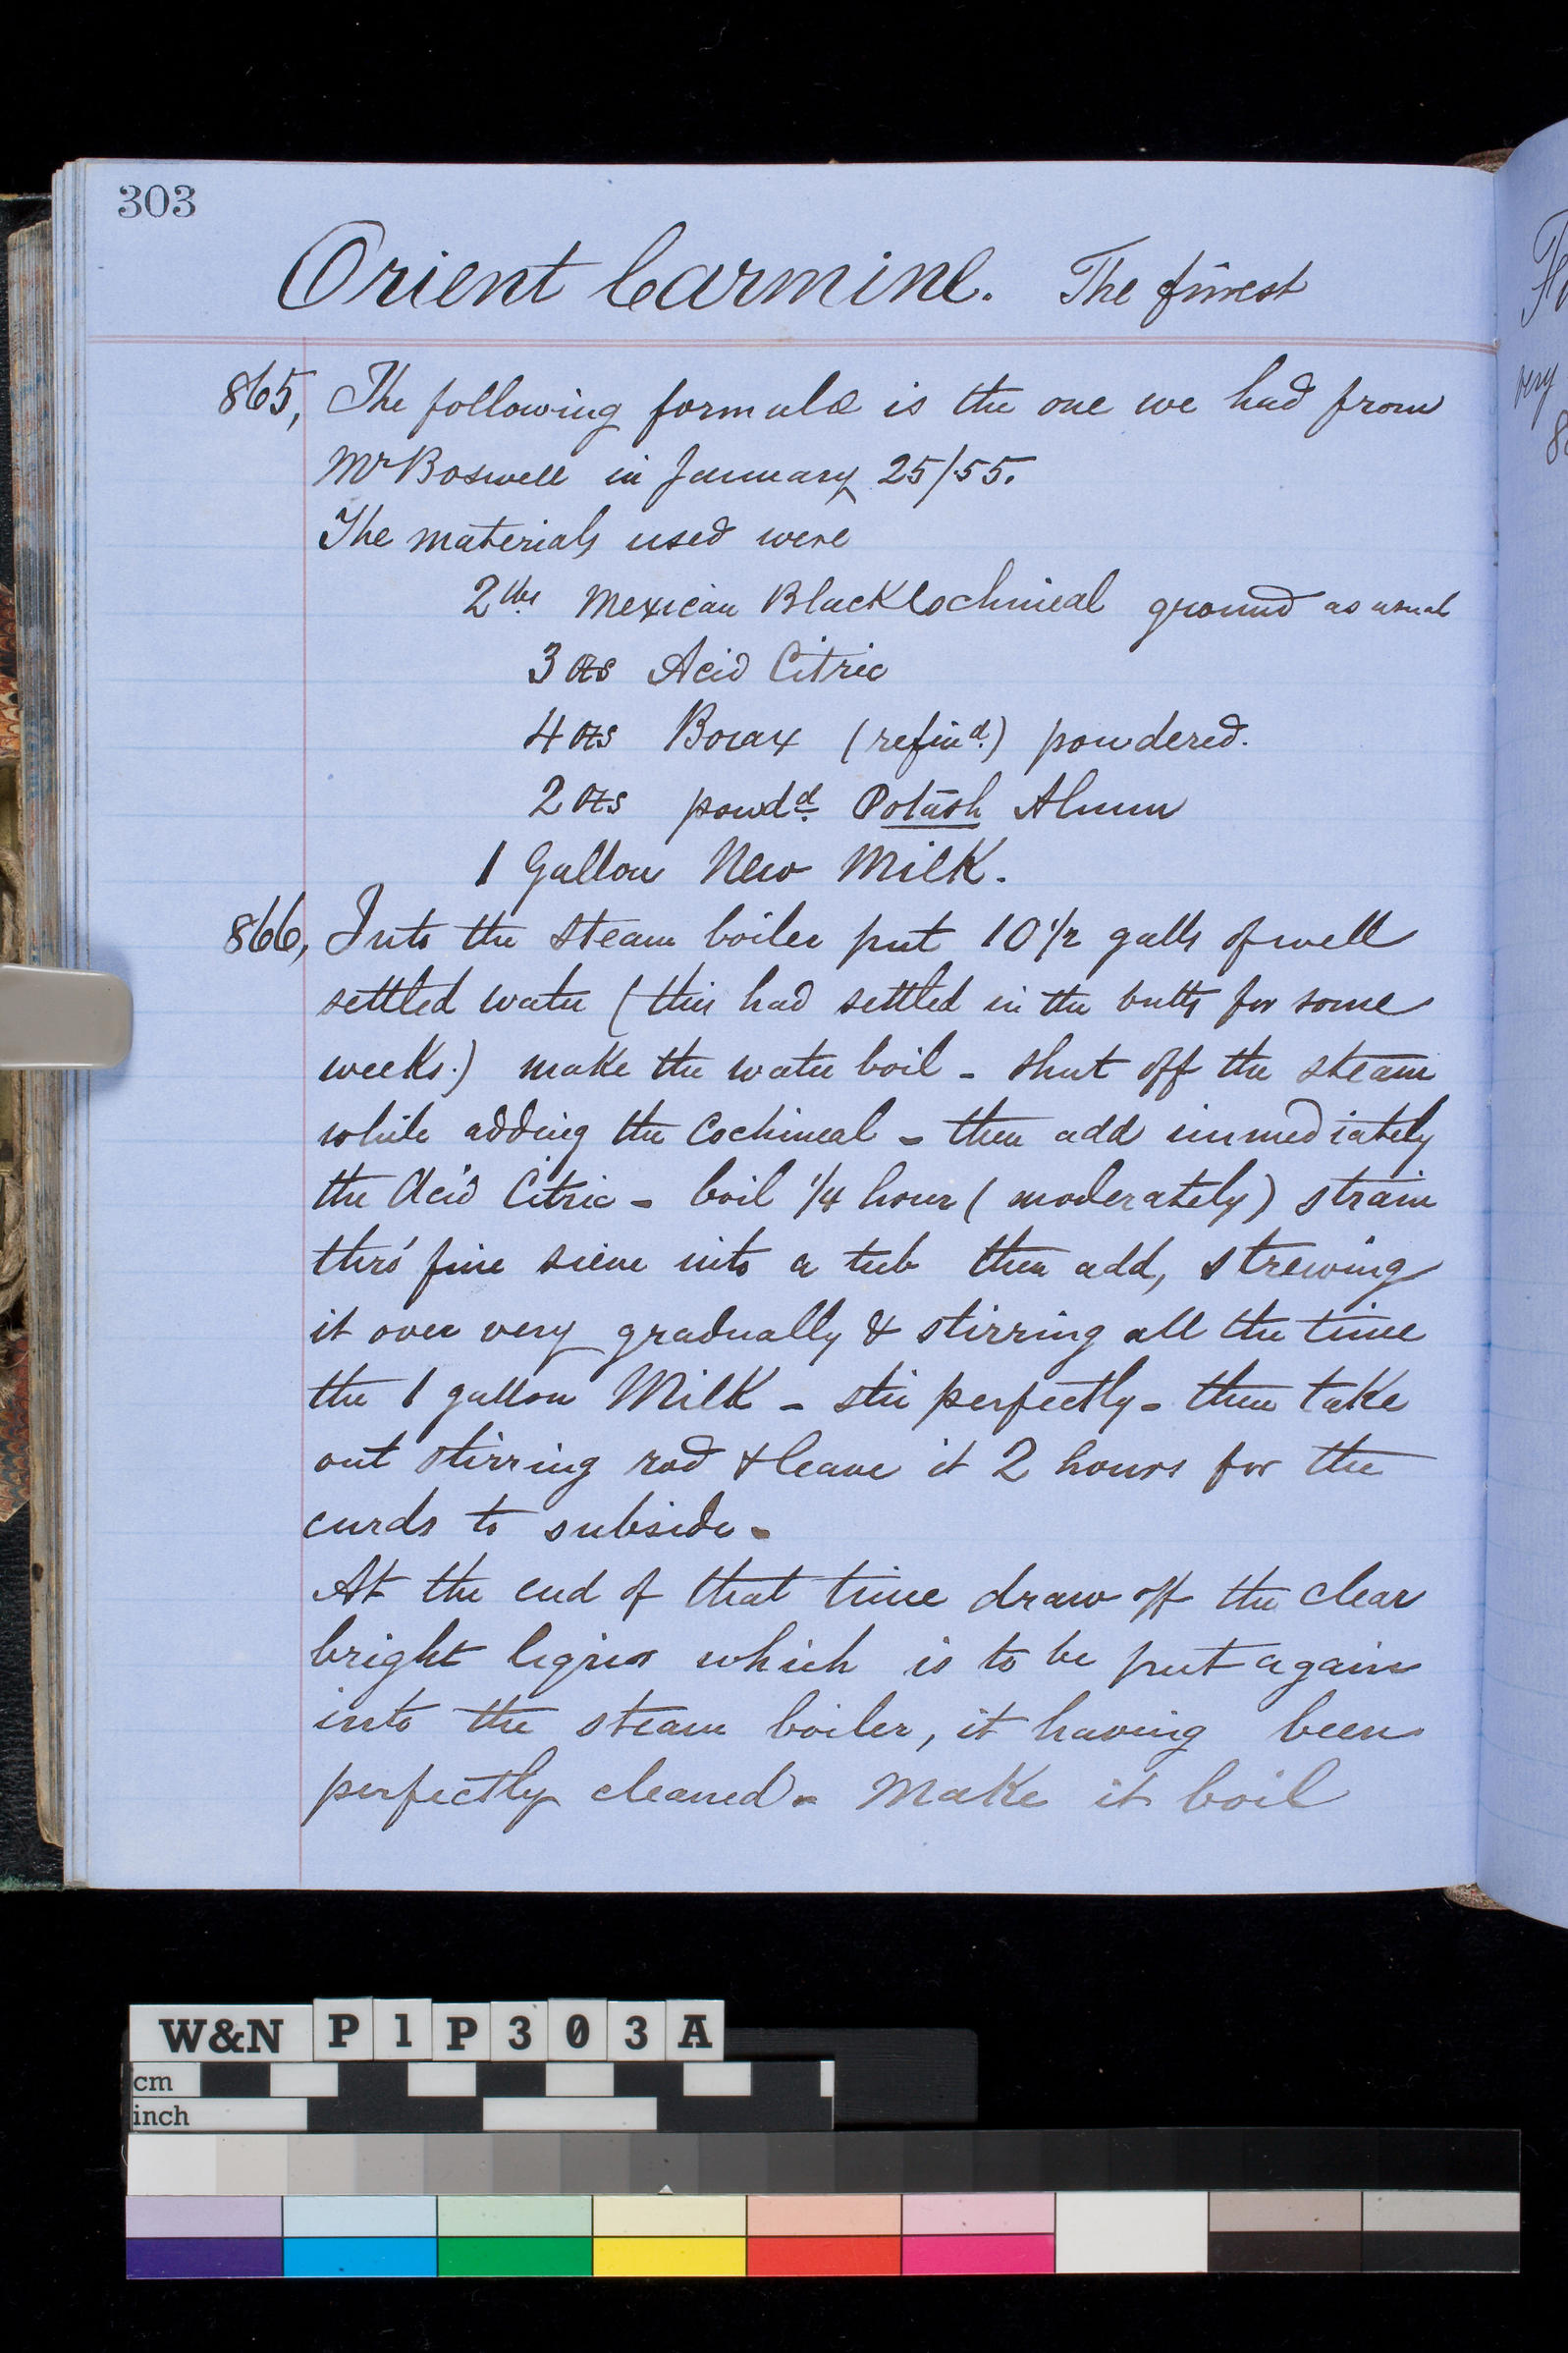 303
Orient Carmine. The finest
865, The following formula is the one we had from
Mr Boswell in January 25/55.
The materials used were
2 lbs Mexican Black Cochineal ground as usual
3 ozs Acid Citric
4 ozs Borax (refind.) powdered.
2 ozs powdd. Potash Alum
1 Gallon New Milk.
866, Into the steam boiler put 10 1/2 galls of well
settled water (this had settled in the butts for some
weeks.) make the water boil - shut off the steam
while adding the Cochineal - then add immediately
the Acid Citric - boil 1/4 hour (moderately) strain
thro' fine sieve into a tub then add, strewing
it over very gradually & stirring all the time
the 1 gallon Milk - stir perfectly - then take
out stirring rod & leave it 2 hours for the
curds to subside -
At the end of that time draw off the clear
bright liquor which is to be put again
into the steam boiler, it having been
perfectly cleaned - Make it boil
very
W&N P1P303A
cm
inch